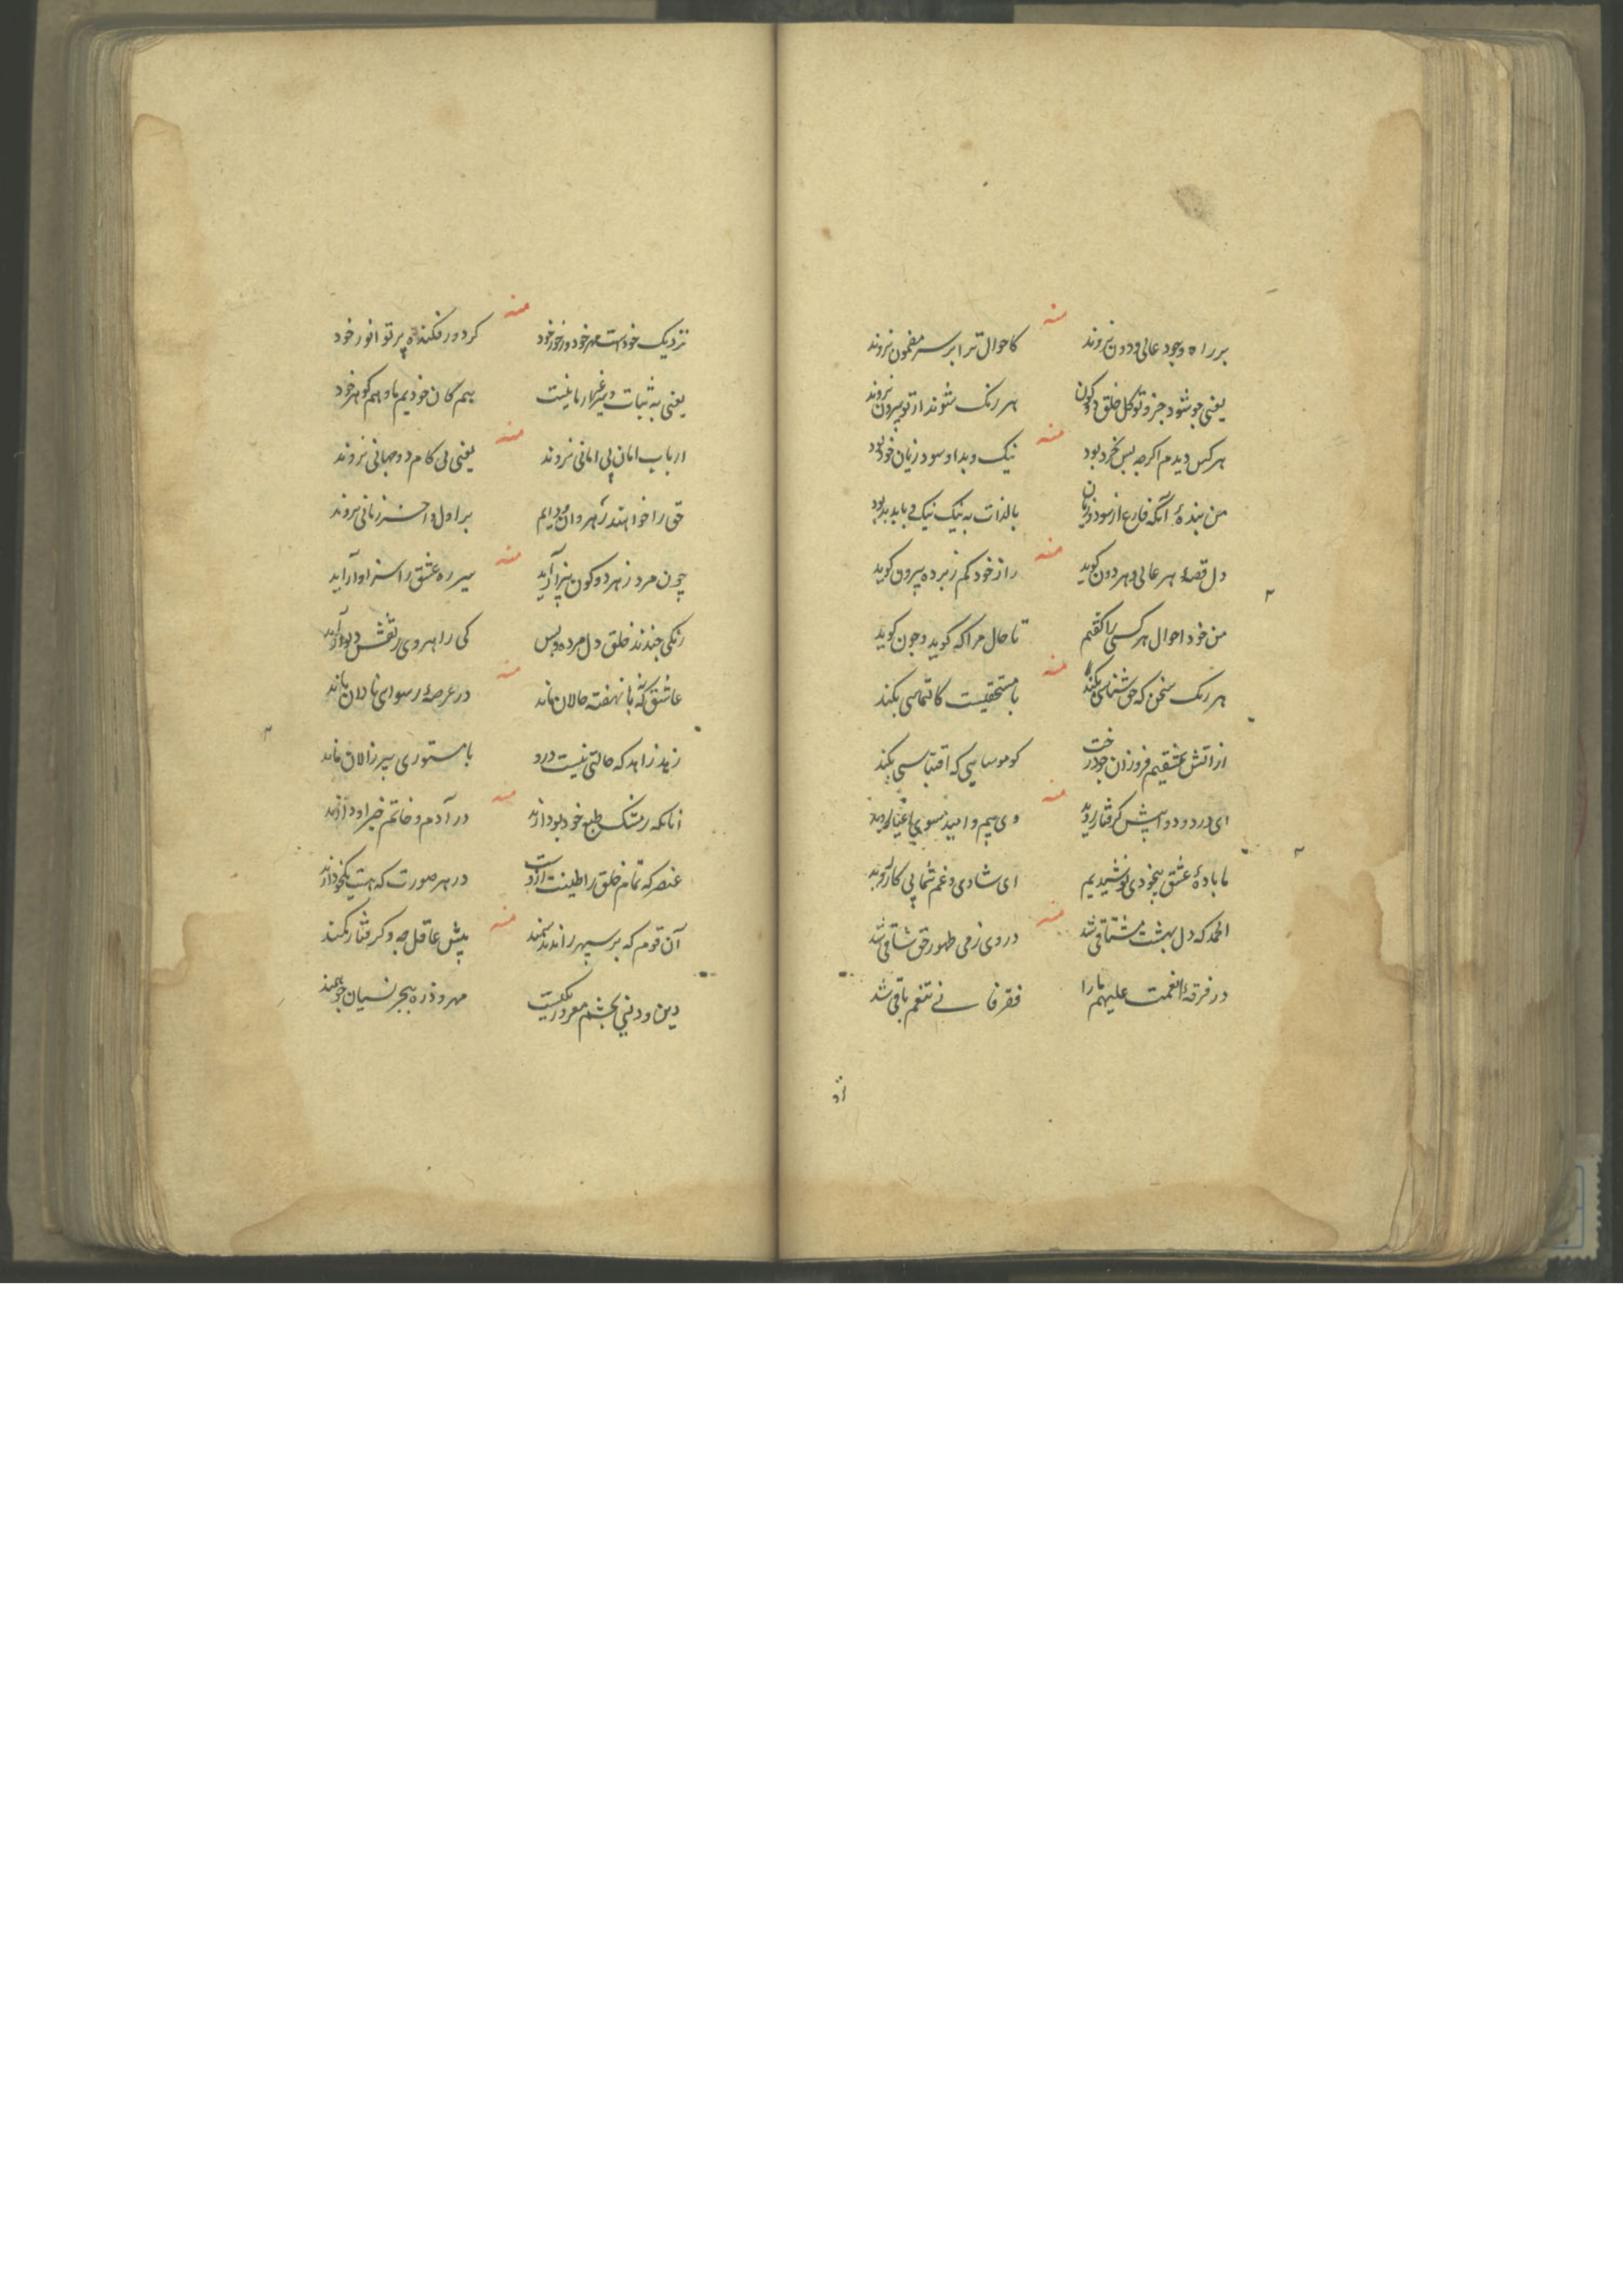 منه
بر راه وجود عالی و دون نروند کاحوال ترا بر سر مضمون نروند
یعنی چو شود جز و تو کل خلق دو کون هر رنک شوند از تو بیرون نروند
منه
هر کس دیدم اکرچه بس بخرد بود نیک و بد او سود و زیان خود بود
من بنده آنکه فارغ از سود و زیان بالذات به نیک نیک و با بد بد بود
منه
دل قصه هر عالی و هر دون کوید راز خود کم ز پرده بیرون کوید
من خود احوال هر کسی را کفتم تا حال مرا که کوید و چون کوید
منه
هر رنک سخن که حق شناسی بکند با مستحقیست کالتماسی بکند
از آتش عشقیم فروزان چو درخت کو موسایی که اقتباسی بکند
منه
ای درد و دوا پیش کرفتار روید وی بیم و امید سوی اغیار روید
ما باده عشق بیخودی نوشیدیم ای شادی و غم شما پی کار روید
منه
الحمد که دل بهشت مشتاقی شد در وی ز می طهور حق ساقی شد
در فرقه انعمت علیهم ما را فقر فانی تنعم باقی شد
منه
نزدیک خودست مهر خود در خور خود کر دور فکنده پرتو انور خود
یعنی به ثبات و سیر غیر از ما نیست هم کان خودیم ما و هم کوهر خود
منه
ارباب امان پی امانی نروند یعنی پی کام دو جهانی نروند
حق را خواهند رهروان دایم بر اول و آخر زمانی نروند
منه
چون مرد ز هر دو کون بیزار آید سیر ره عشق را سزاوار آید
رنکی چندند خلق دل مرده و بس کی راهروی ز نقش دیوار آید
منه
عاشق که نه با نهفته حالان ماند در عرصه رسوای نالان ماند
زهد زاهد که حالتی نیست درو با مستوری پیر زالان ماند
منه
آنانکه ز مشک طبع خود بو دارند در آدم و خاتم خبر او دارند
عنصر که تمام خلق را طینت ازوست در هر صورت که هست یکخو دارند
منه
آن قوم که بر سپهر راندند سمند پیش عاقل چه و کرفتار کمند
دین و دنیی بچشم مغرور یکیست مهر و ذره به بحر نسیان چو همند